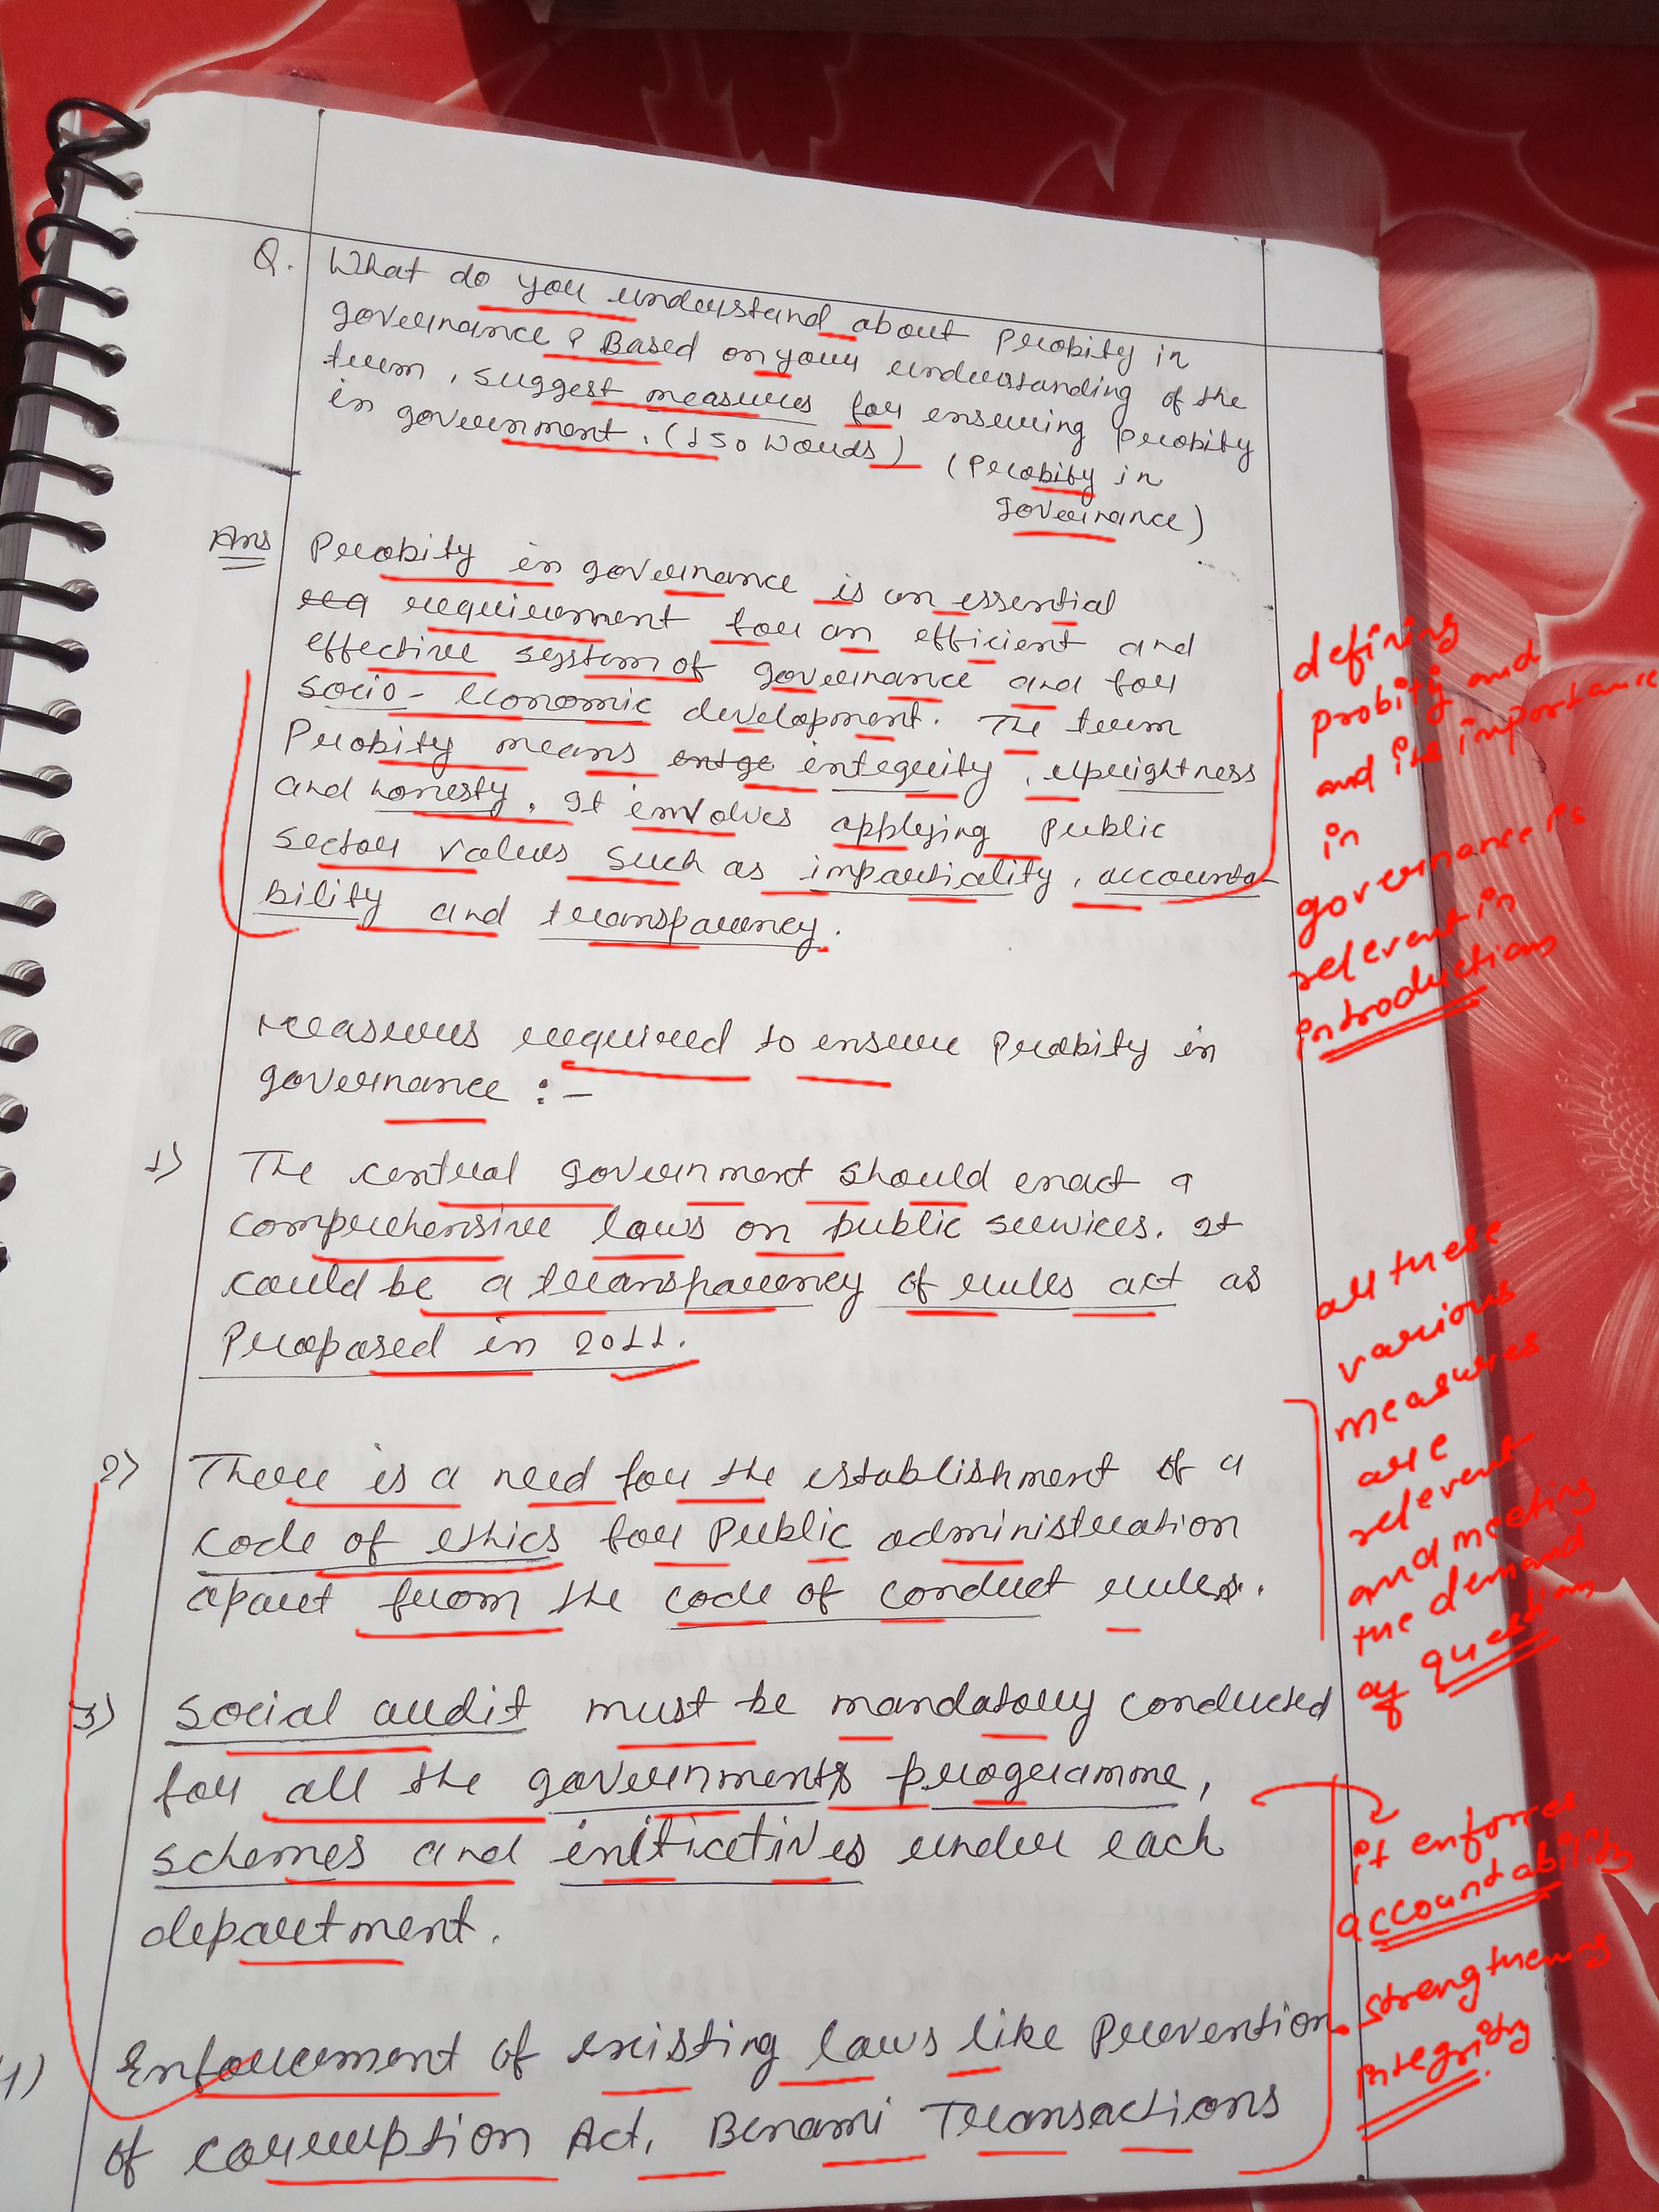 Q. What do you understand about probity in
governance? Based on your understanding of the
term, suggest measures for ensuring probity
in government. (150 words)
(Probity in
governance)
Ans Probity in governance is an essential
req requirement for an efficient and
effective system of governance and for
socio-economic development. The term
Probity means integrity, uprightness
and honesty. It involves applying public
sector values such as impartiality, accounta-
bility and transparency.
defining
probity and
and its importance
in
governance is
relevent in
introductions
Measures required to ensure probity in
governance :-
1) The central government should enact a
comprehensive laws on public services. It
could be a transparency of rules act as
Proposed in 2011.
2) There is a need for the establishment of a
code of ethics for Public administration
apart from the code of conduct rules.
all these
various
measures
are
relevent
and meeting
the demand
of questions
3) Social audit must be mandatory conducted
for all the governments programme,
schemes and initiatives under each
department.
it enforces
accountability
4) Enforcement of existing laws like Prevention
of corruption Act, Benami Transactions
strengthening
integrity